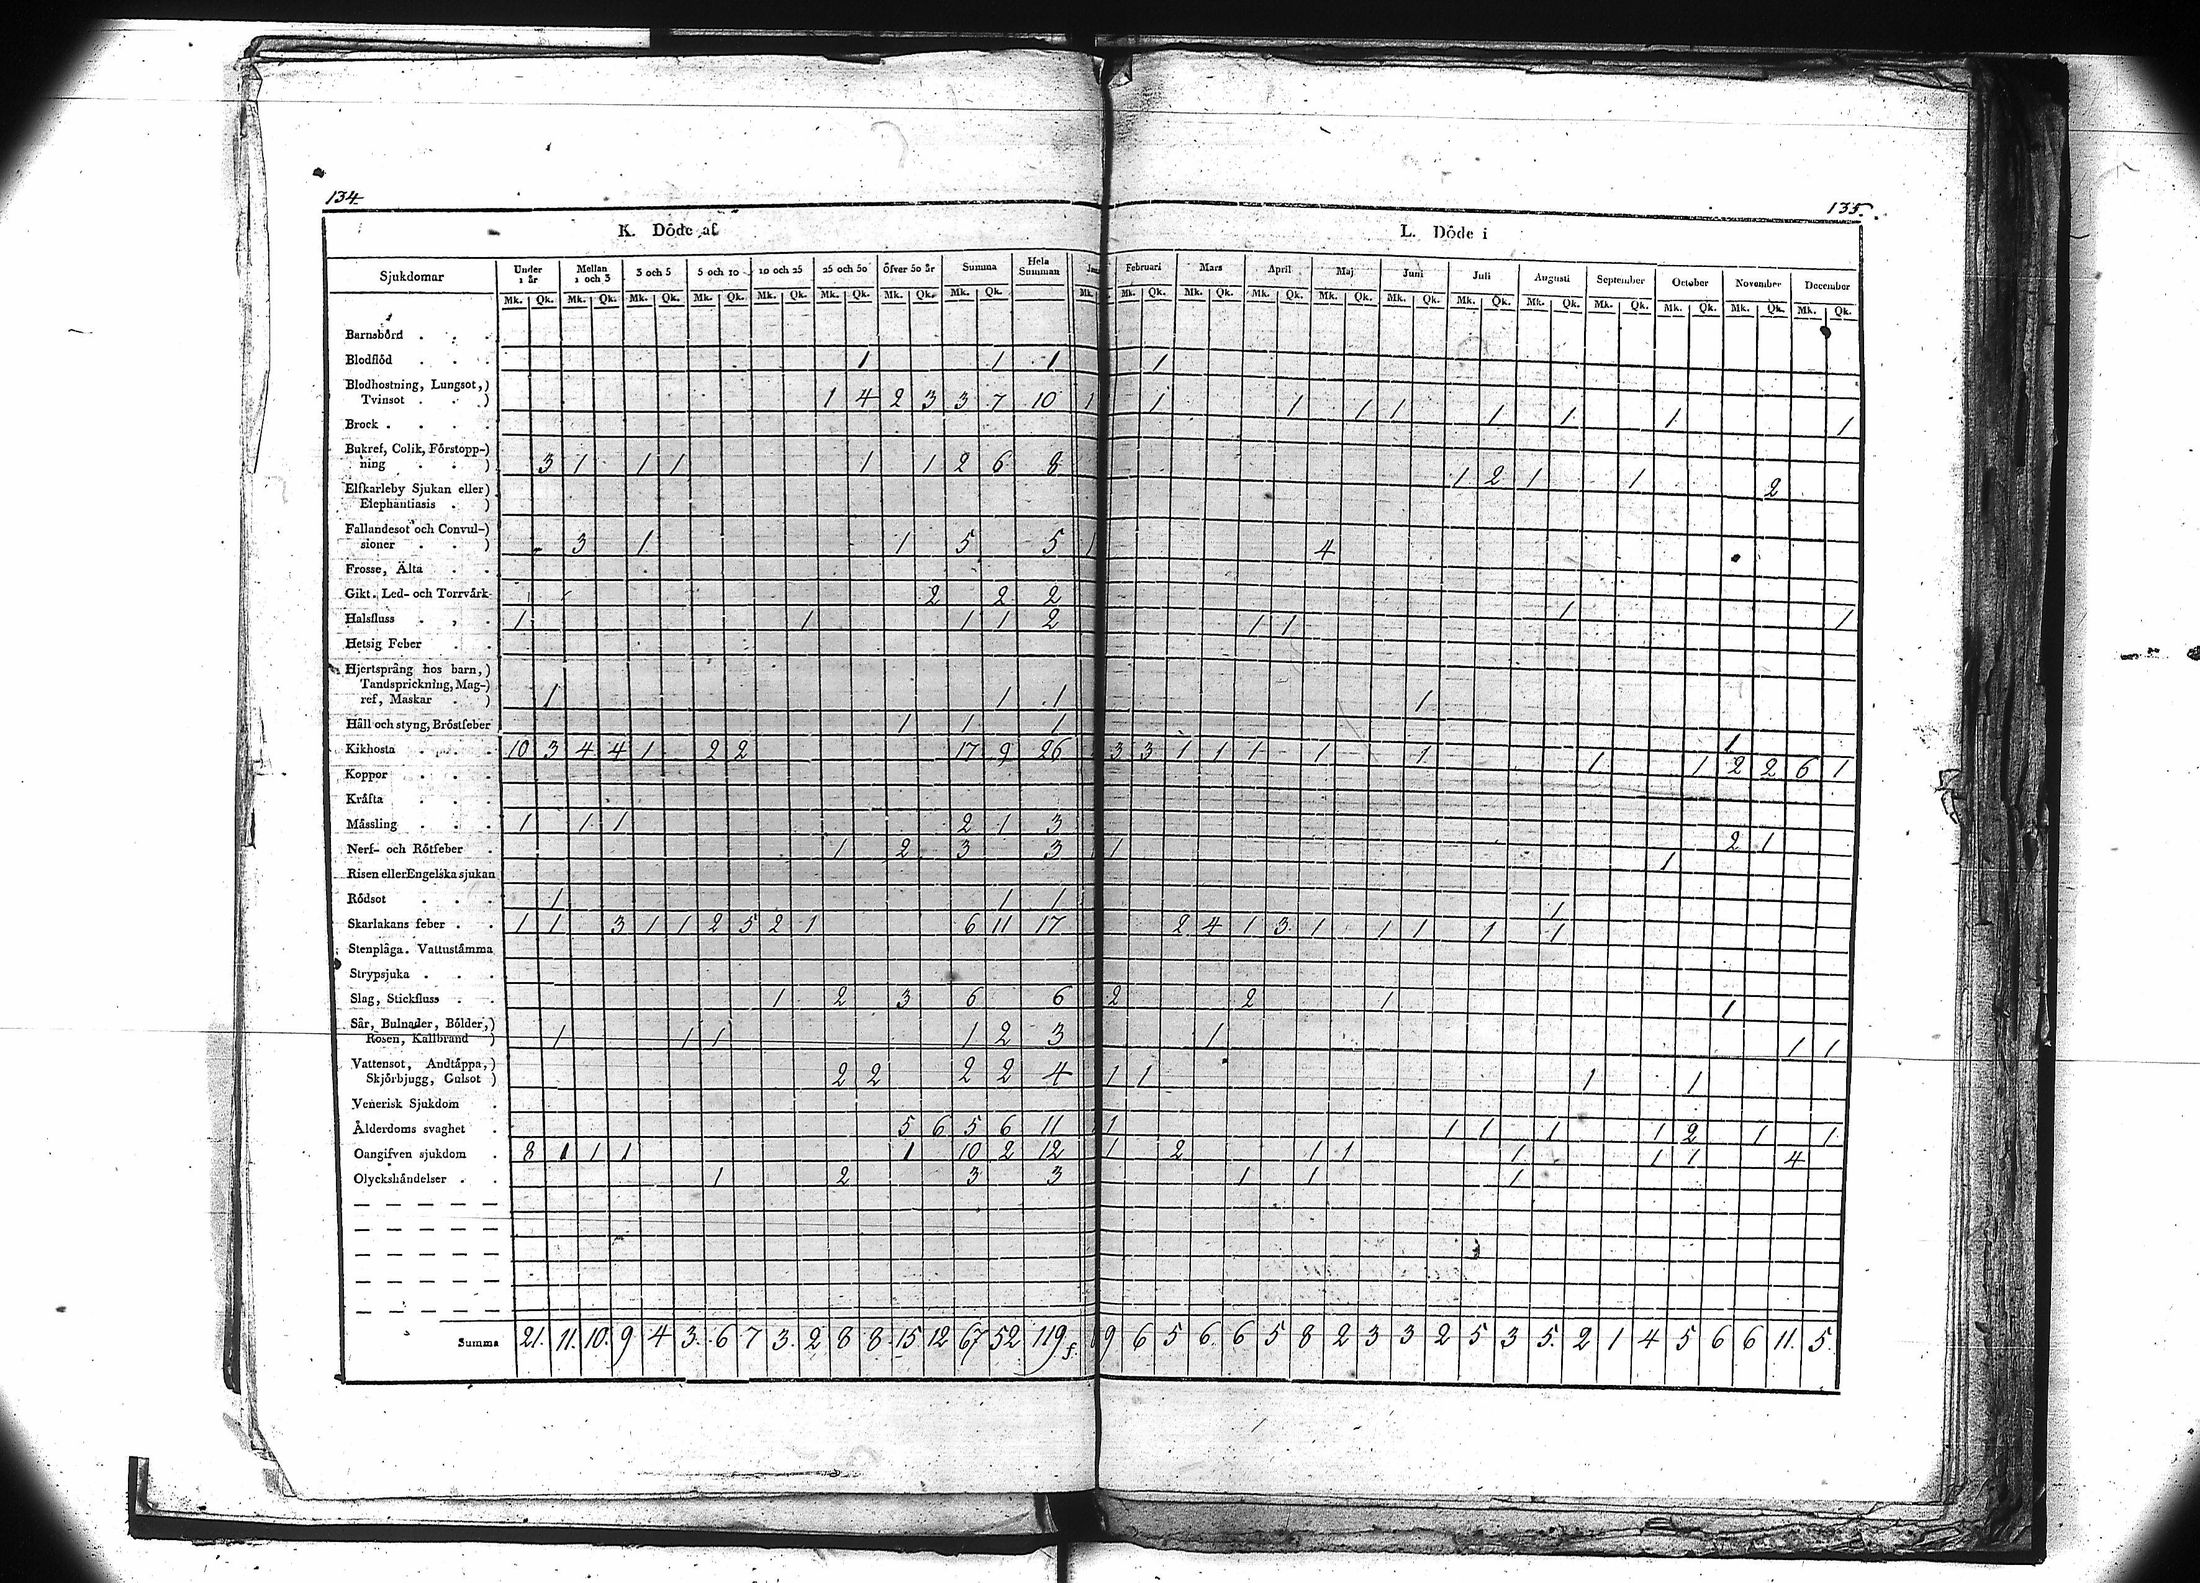 134.
135.
K. Döde af
L. Döde i
Sjukdomar Under 1 år Mellan 1 och 3 3 och 5 5 och 10 10 och 25 25 och 50 Öfver 50 år Summa Hela Summan Februari Mars April Maj Juni Juli Augusti September October November December
Mk. Qk. Mk. Qk. Mk. Qk. Mk. Qk. Mk. Qk. Mk. Qk. Mk. Qk. Mk. Qk. Mk. Mk. Qk. Mk. Qk. Mk. Qk. Mk. Qk. Mk. Qk. Mk. Qk. Mk. Qk. Mk. Qk. Mk. Qk. Mk. Qk. Mk. Qk.
Barnsbörd . . .
Blodflöd . . . 1 1 1 1
Blodhostning, Lungsot,)
Tvinsot . . ) 1 4 2 3 3 7 10 1 1 1 1 1 1 1 1 1
Brock . . . .
Bukref, Colik, Förstopp-)
ning . . ) 3 1 1 1 1 1 2 6 8 1 2 1 1 2
Elfkarleby Sjukan eller)
Elephantiasis . )
Fallandesot och Convul-)
sioner . . ) 3 1 1 5 5 1 4
Frosse, Älta . .
Gikt. Led- och Torrvärk 2 2 2 1 1
Halsfluss . , . 1 1 1 1 2 1 1
Hetsig Feber . .
Hjertsprång hos barn,)
Tandsprickning, Mag-)
ref, Maskar . ) 1 1 1 1
Håll och styng, Bröstfeber 1 1 1 1
Kikhosta . . . 10 3 4 4 1 2 2 17 9 26 3 3 1 1 1 1 1 1 1 2 2 6 1
Koppor . . .
Kräfta . . .
Mässling . . . 1 1 1 2 1 3 2 1
Nerf- och Rötfeber . 1 2 3 3 1 1
Risen eller Engelska sjukan
Rödsot . . . 1 1 1 1
Skarlakans feber . . 1 1 3 1 1 2 5 2 1 6 11 17 2 4 1 3 1 1 1 1 1
Stenplåga. Vattustämma
Strypsjuka . . .
Slag, Stickfluss . . 1 2 3 6 6 2 2 1 1
Sår, Bulnader, Bölder,)
Rosen, Kallbrand ) 1 1 1 1 2 3 1 1 1
Vattensot, Andtäppa,)
Skjörbjugg, Gulsot ) 2 2 2 2 4 1 1 1 1
Venerisk Sjukdom .
Ålderdoms svaghet . 5 6 5 6 11 1 1 1 1 1 2 1 1
Oangifven sjukdom . 8 1 1 1 1 10 2 12 1 2 1 1 1 1 1 4
Olyckshändelser . . 1 2 3 3 1 1 1
Summa 21. 11. 10. 9 4 3. 6 7 3. 2 8 8 15 12 67 52 119 9 6 5 6 6 5 8 2 3 3 2 5 3 5. 2 1 4 5 6 6 11. 5.